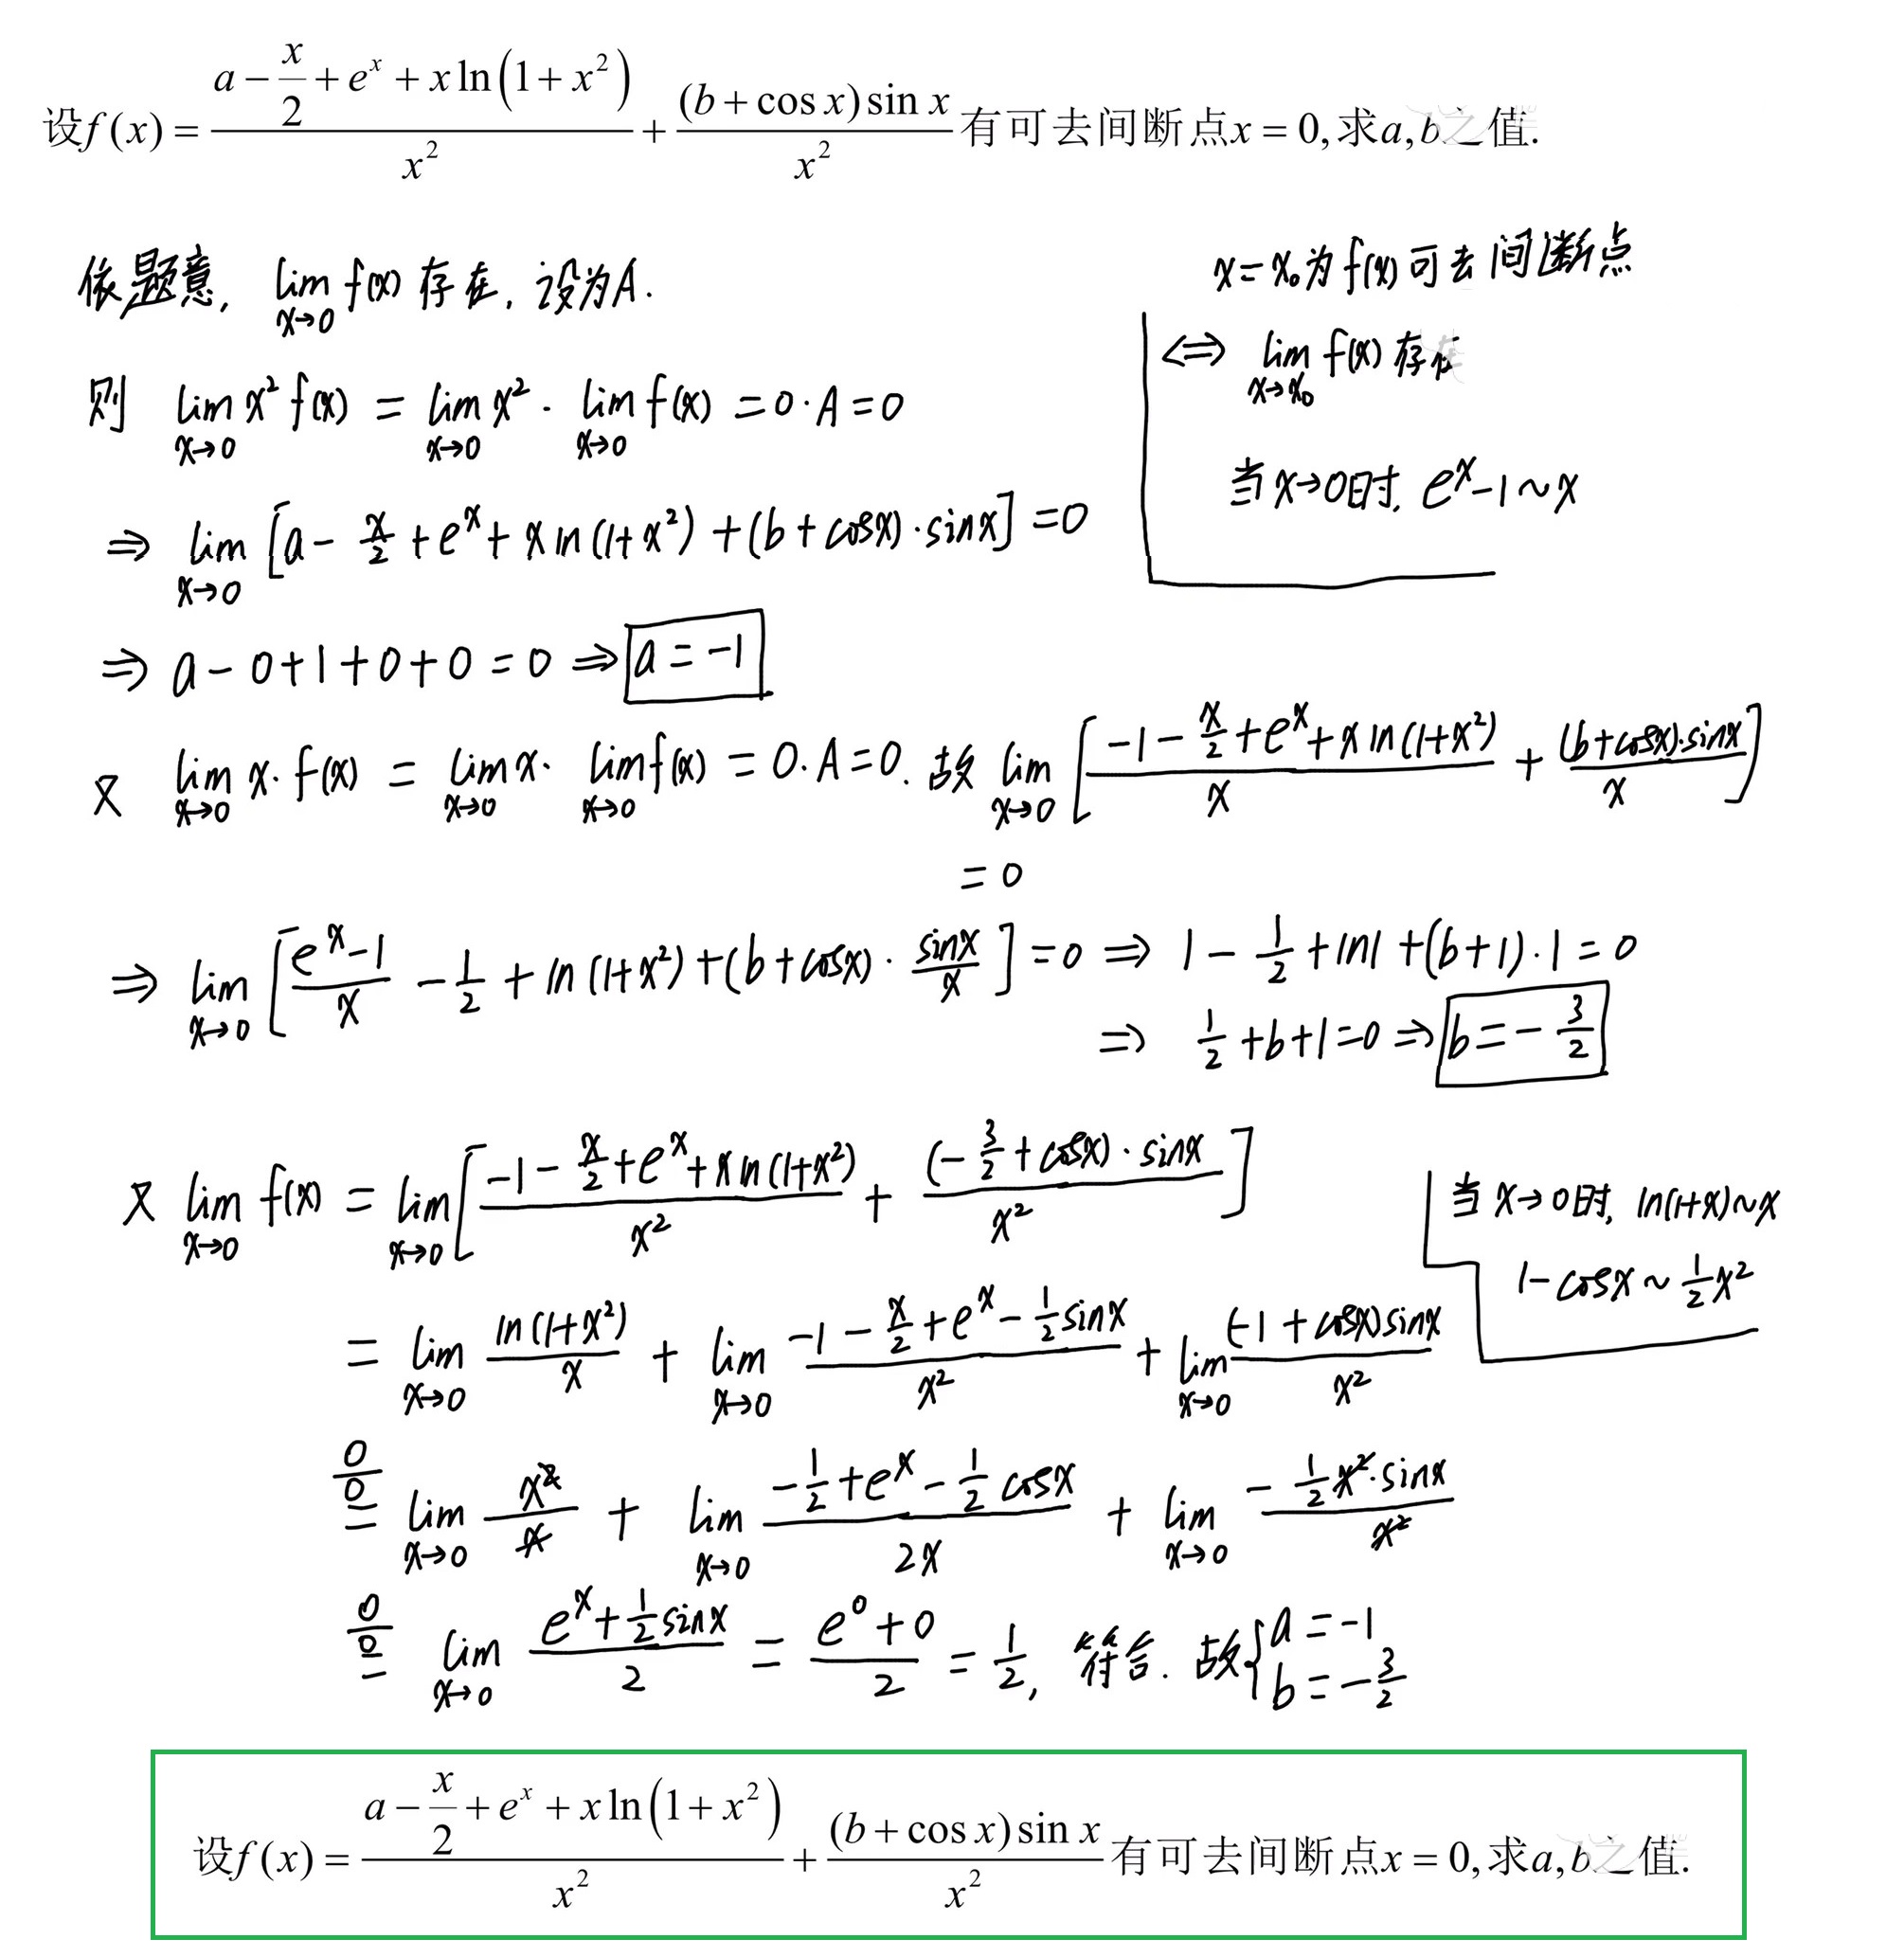 设f(x) = (a - x/2 + e^x + x ln(1 + x^2))/x^2 + ((b + cos x) sin x)/x^2 有可去间断点x = 0, 求a, b之值.
依题意, lim_{x→0} f(x) 存在, 设为A.
x = x₀为f(x)可去间断点
⟺ lim_{x→x₀} f(x) 存在
则 lim_{x→0} x^2 f(x) = lim_{x→0} x^2 · lim_{x→0} f(x) = 0·A = 0
当x→0时, e^x - 1 ~ x
⇒ lim_{x→0} [a - x/2 + e^x + x ln(1+x^2) + (b + cosx)·sinx] = 0
⇒ a - 0 + 1 + 0 + 0 = 0 ⇒ a = -1
又 lim_{x→0} x·f(x) = lim_{x→0} x · lim_{x→0} f(x) = 0·A = 0. 故 lim_{x→0} [(-1 - x/2 + e^x + x ln(1+x^2))/x + ((b+cosx)·sinx)/x]
= 0
⇒ lim_{x→0} [(e^x - 1)/x - 1/2 + ln(1+x^2) + (b + cosx)·sinx/x] = 0 ⇒ 1 - 1/2 + ln1 + (b+1)·1 = 0
⇒ 1/2 + b + 1 = 0 ⇒ b = -3/2
又 lim_{x→0} f(x) = lim_{x→0} [(-1 - x/2 + e^x + x ln(1+x^2))/x^2 + ((-3/2 + cosx)·sinx)/x^2]
当x→0时, ln(1+x) ~ x
1 - cosx ~ 1/2 x^2
= lim_{x→0} ln(1+x^2)/x + lim_{x→0} (-1 - x/2 + e^x - 1/2 sinx)/x^2 + lim_{x→0} ((-1 + cosx) sinx)/x^2
0/0 = lim_{x→0} x^2/x + lim_{x→0} (-1/2 + e^x - 1/2 cosx)/2x + lim_{x→0} (-1/2 x^2·sinx)/x^2
0/0 = lim_{x→0} (e^x + 1/2 sinx)/2 = (e^0 + 0)/2 = 1/2, 符合. 故{a = -1
b = -3/2
设f(x) = (a - x/2 + e^x + x ln(1 + x^2))/x^2 + ((b + cos x) sin x)/x^2 有可去间断点x = 0, 求a, b之值.